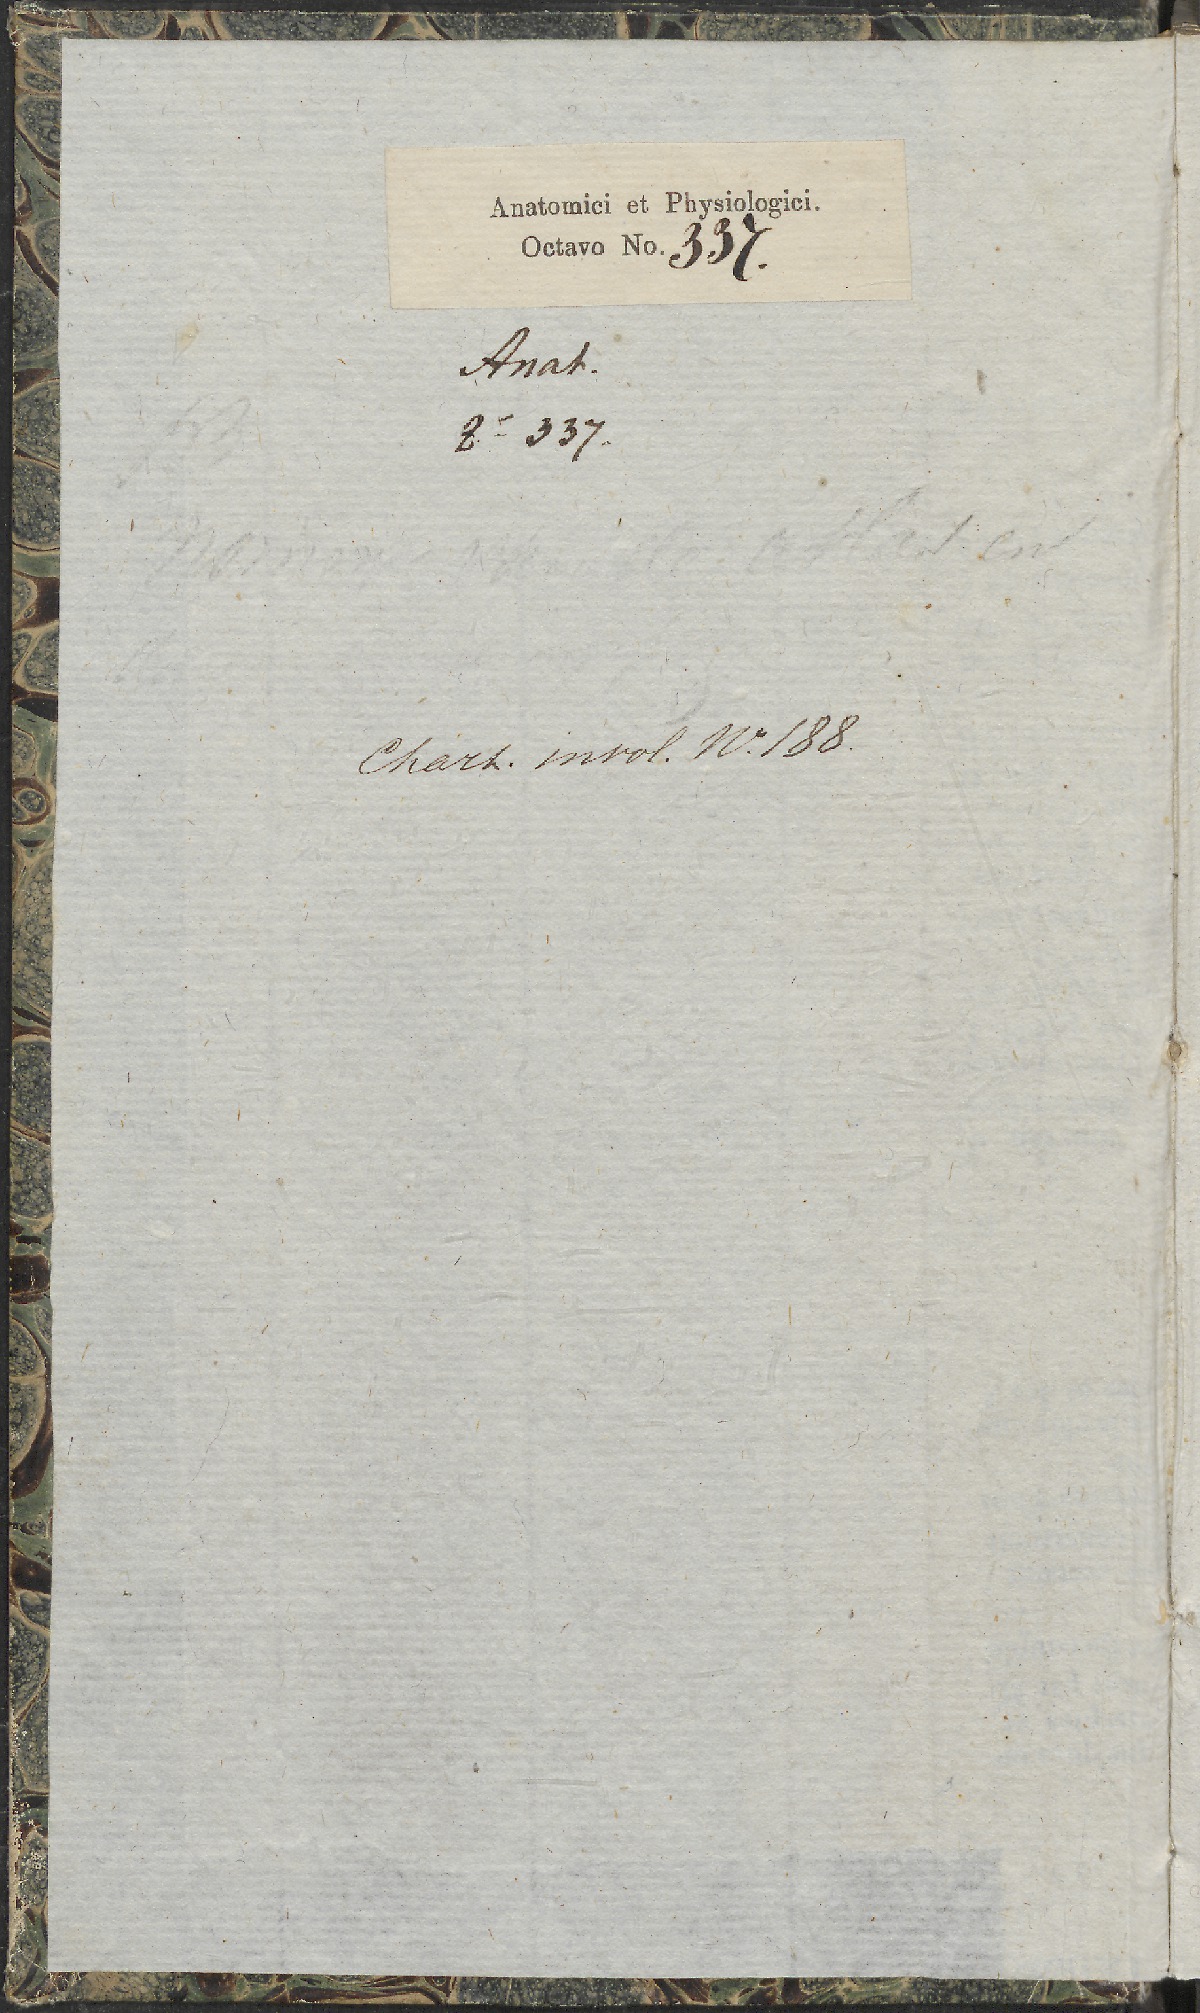 Anatomici et Physiologici.
Octavo No. 337.
Anat.
8- 337.
Chart. invol. Nr. 188.